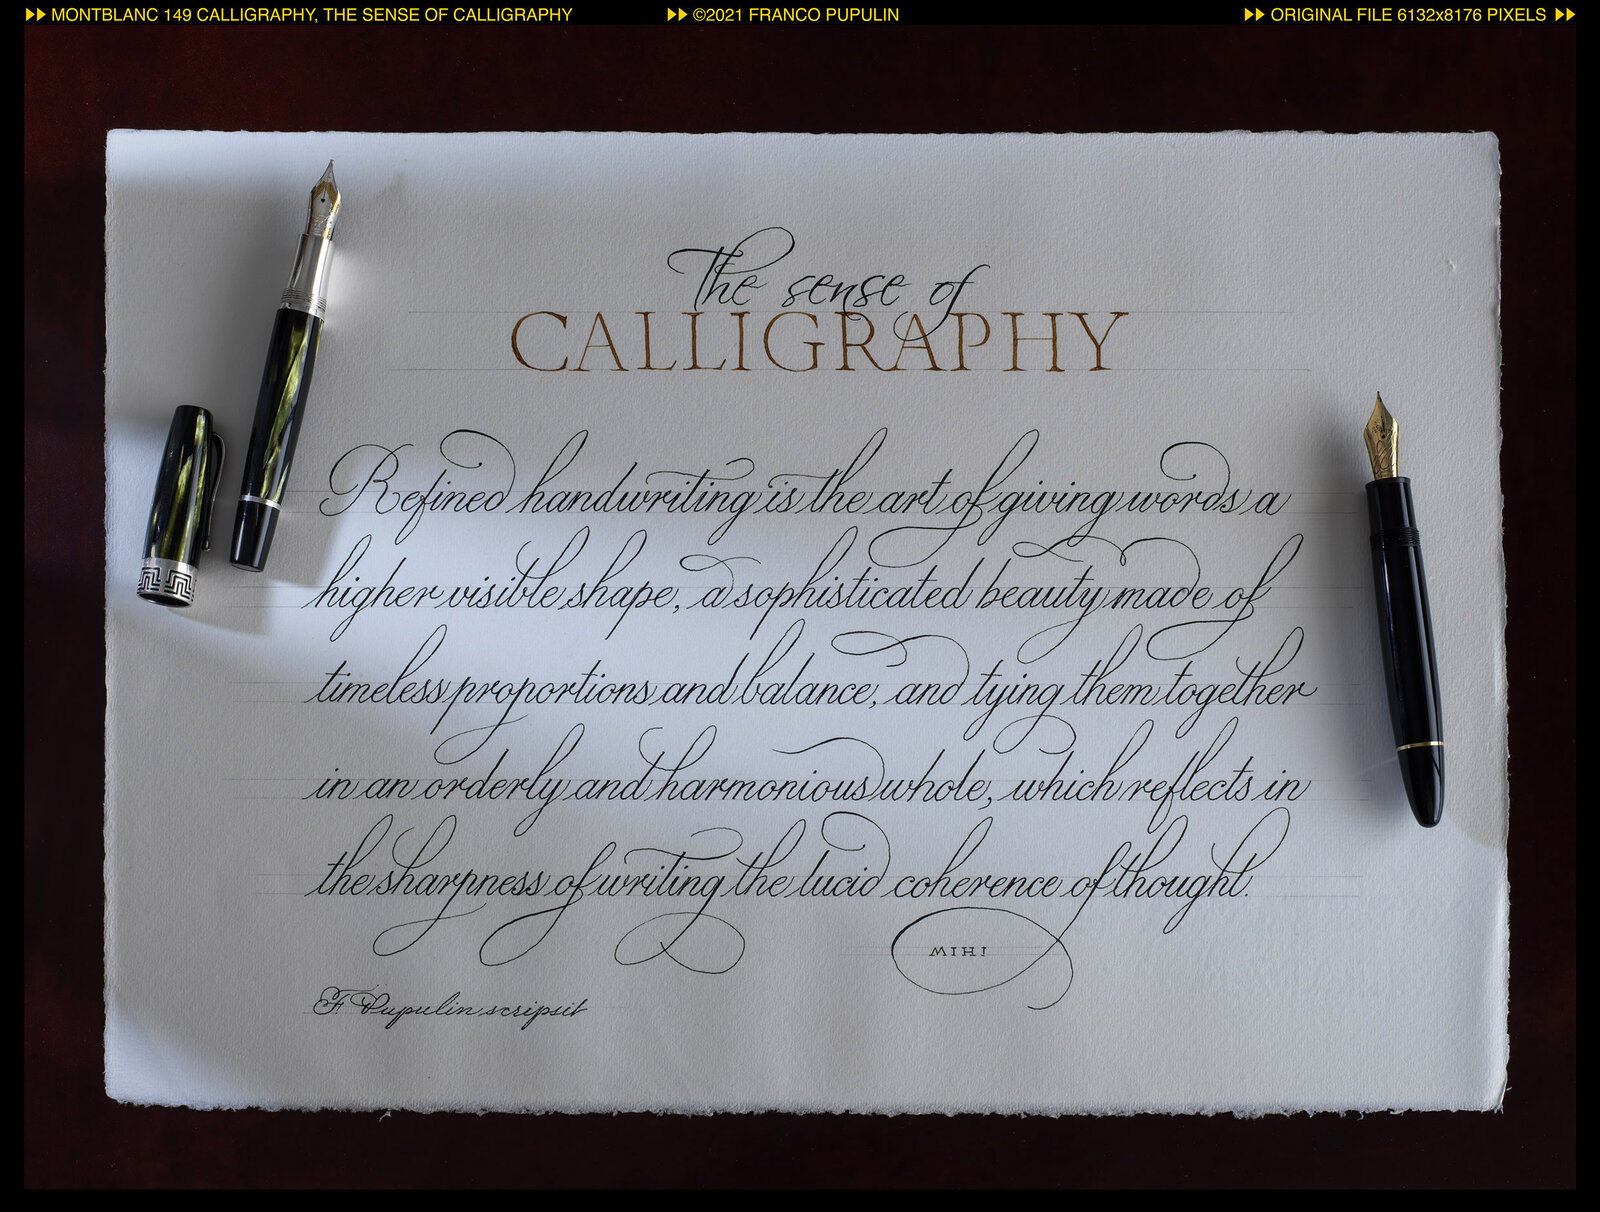 MONTBLANC 149 CALLIGRAPHY, THE SENSE OF CALLIGRAPHY
©2021 FRANCO PUPULIN
ORIGINAL FILE 6132x8176 PIXELS
The sense of
CALLIGRAPHY
Refined handwriting is the art of giving words a
higher visible shape, a sophisticated beauty made of
timeless proportions and balance, and tying them together
in an orderly and harmonious whole, which reflects in
the sharpness of writing the lucid coherence of thought.
MIHI
F Pupulin scripsit